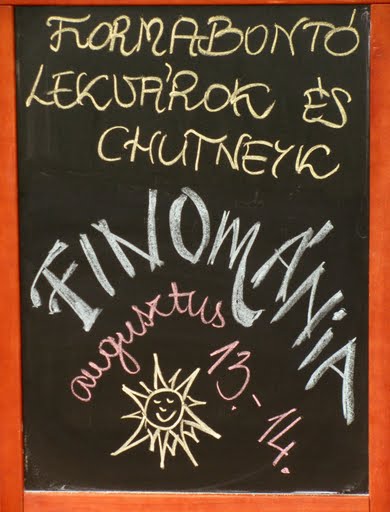 FORMABONTÓ
LEKVÁROK ÉS
CHUTNEYK
FINOMÁNIA
augusztus
13.-14.